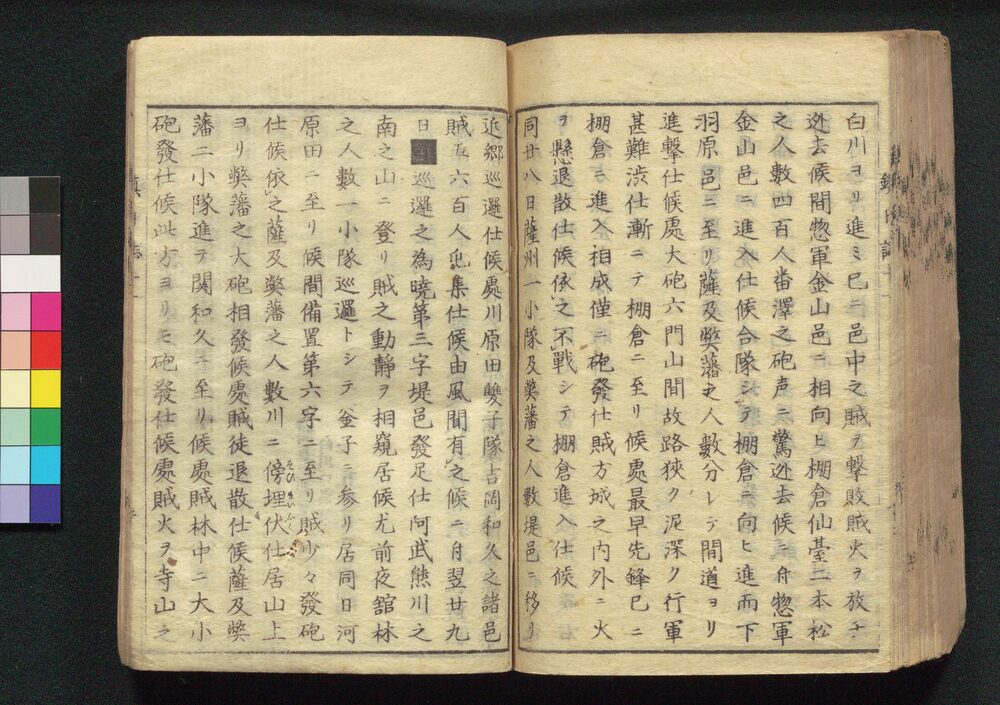 白川ヨリ進ミ已ニ邑中之賊ヲ撃敗賊火ヲ放チ
迯去候間惣軍金山邑ニ相向ヒ棚倉仙臺二本松
之人數四百人畨澤之砲声ニ驚迯去候ニ付惣軍
金山邑ニ進入仕候合隊シテ棚倉ニ向ヒ進而下
羽原邑ニ至リ薩及弊藩之人數分レテ間道ヨリ
進撃仕候処大砲六門山間故路狹ク泥深ク行軍
甚難渋仕漸ニテ棚倉ニ至リ候處最早先鋒已ニ
棚倉ニ進入相成僅ニ砲發仕賊方城之内外ニ火
ヲ懸退散仕候依之不戰シテ棚倉進入仕候
同廿八日薩州一小隊及弊藩之人數堤邑ニ移リ
近郷巡邏仕候處川原田雙子隊吉岡和久之諸邑
賊五六百人屯集仕候由風聞有之候ニ付翌廿九
日巡邏之為曉第三字堤邑發足仕向武熊川之
南之山ニ登リ賊之動靜ヲ相窺居候尤前夜舘林
之人數一小隊巡邏トシテ金子ニ参リ居同日河
原田ニ至リ候間備置第六字ニ至リ賊少々發砲
仕候依之薩及弊藩之人數川ニ傍埋伏仕居山上
ヨリ弊藩之大砲相發候處賊徒退散仕候薩及弊
藩二小隊進テ関和久ニ至リ候處賊林中ニ大小
砲發仕候此方ヨリモ砲發仕候處賊火ヲ寺山之